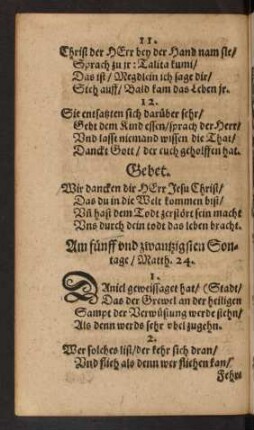 11.
Christ der HErr bey der Hand nam sie/
Sprach zu jr: Talita kumi/
Das ist/ Megdlein ich sage dir/
Sich auff/ Bald kam das Leben jr.
12.
Sie entsatzten sich darüber sehr/
Gebt dem Kind essen/ sprach der Herr/
Vnd lasst niemand wissen die That/
Danckt Gott/ der euch geholffen hat.
Gebet.
Wir dancken dir HErr Jesu Christ/
Das du in die Welt kommen bist/
Vñ hast dem Todt zerstört sein macht
Vns durch dein todt das leben bracht.
Am fünff vnd zwantzigsten Son-
tage/ Matth. 24.
1.
DAniel geweissaget hat/ (Stadt/
Das der Grewel an der heiligen
Sampt der Verwüstung werde stehn/
Als denn werds sehr vbel zugehn.
2.
Wer solches list/ der kehr sich dran/
Vnd flieh als denn wer fliehen kan/
Fehrt